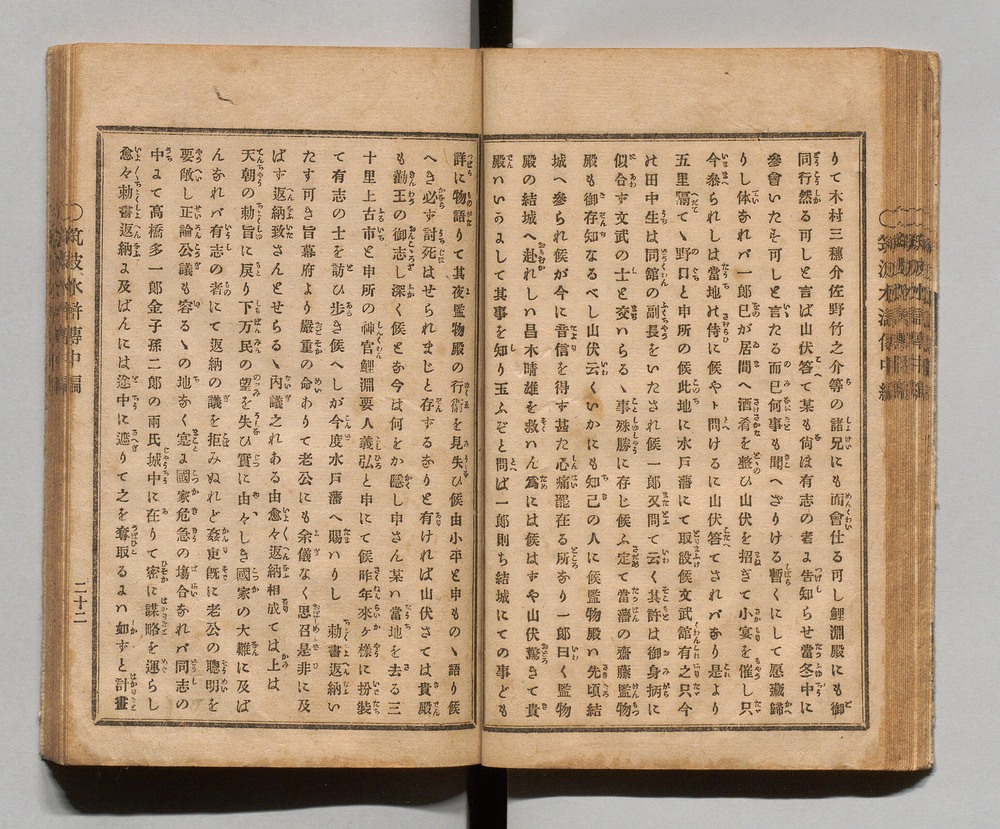 りて木村三穗介佐野竹之介等の諸兄にも面會仕る可し鯉淵殿にも御
同行然る可しと言ば山伏答て某も尚ほ有志の者よ告知らせ當冬中に
參會いたそ可しと言たるの而巳何事も聞へざりける暫くにして愿藏歸
りし体あれバ一郎巳が居間へ酒肴を整ひ山伏を招ぎて小宴を催し只
今參られしは當地の侍に候やト問けるに山伏答てされバあり是より
五里隔て丶野口と申所の候此地に水戸藩にて取設候文武館有之只今
は田中生は同館の副長をいたされ候一郎又問て云く其許は御身柄に
似合ず文武の士と交いらる丶事殊勝に存じ候ふ定て當藩の齋藤監物
殿も御存知なるべし山伏云くいかにも知己の人に候監物殿ハ先頃結
城へ參られ候が今に音信を得ず甚た心痛罷在る所あり一郎曰く監物
殿の結城へ赴れしハ昌木晴雄を救ハん爲には候はずや山伏驚きて貴
殿ハいうよして其事を知り玉ふぞと問ば一郎則ち結城にての事ども
詳に物語りて其夜監物殿の行衞を見失ひ候由小平と申もの丶語り候
へき必ず討死はせられまじと存ずるありと有ければ山伏さては貴殿
も勸王の御志し深く候と今は何をか隱し申さん某ハ當地を去る三
十里上古市と申所の神官鯉淵要人義弘と申にて候昨年來ケ樣に扮裝
て有志の士を訪ひ歩き候へしが今度水戸藩へ賜ハりし 勅書返納い
たす可き旨幕府より嚴重の命ありて老公にも余儀なく思召是非に及
ばす返納致さんとせらる丶内議之れある由愈々返納相成ては上は
天朝の勅旨に戻り下万民の望を失ひ實に由々しき國家の大難に及ば
んあれバ有志の者にて返納の議を拒みぬれど姦吏既に老公の聰明を
要蔽し正論公議も容る丶の地あく寔よ國家危急の塲合あれバ同志の
中よて高橋多一郎金子孫二郎の兩氏城中に在りて密に謀略を運らし
愈々勅書返納よ及ばんには途中に遮りて之を奪取るよハ如ずと計畫
筑波水滸傳中編
二十二